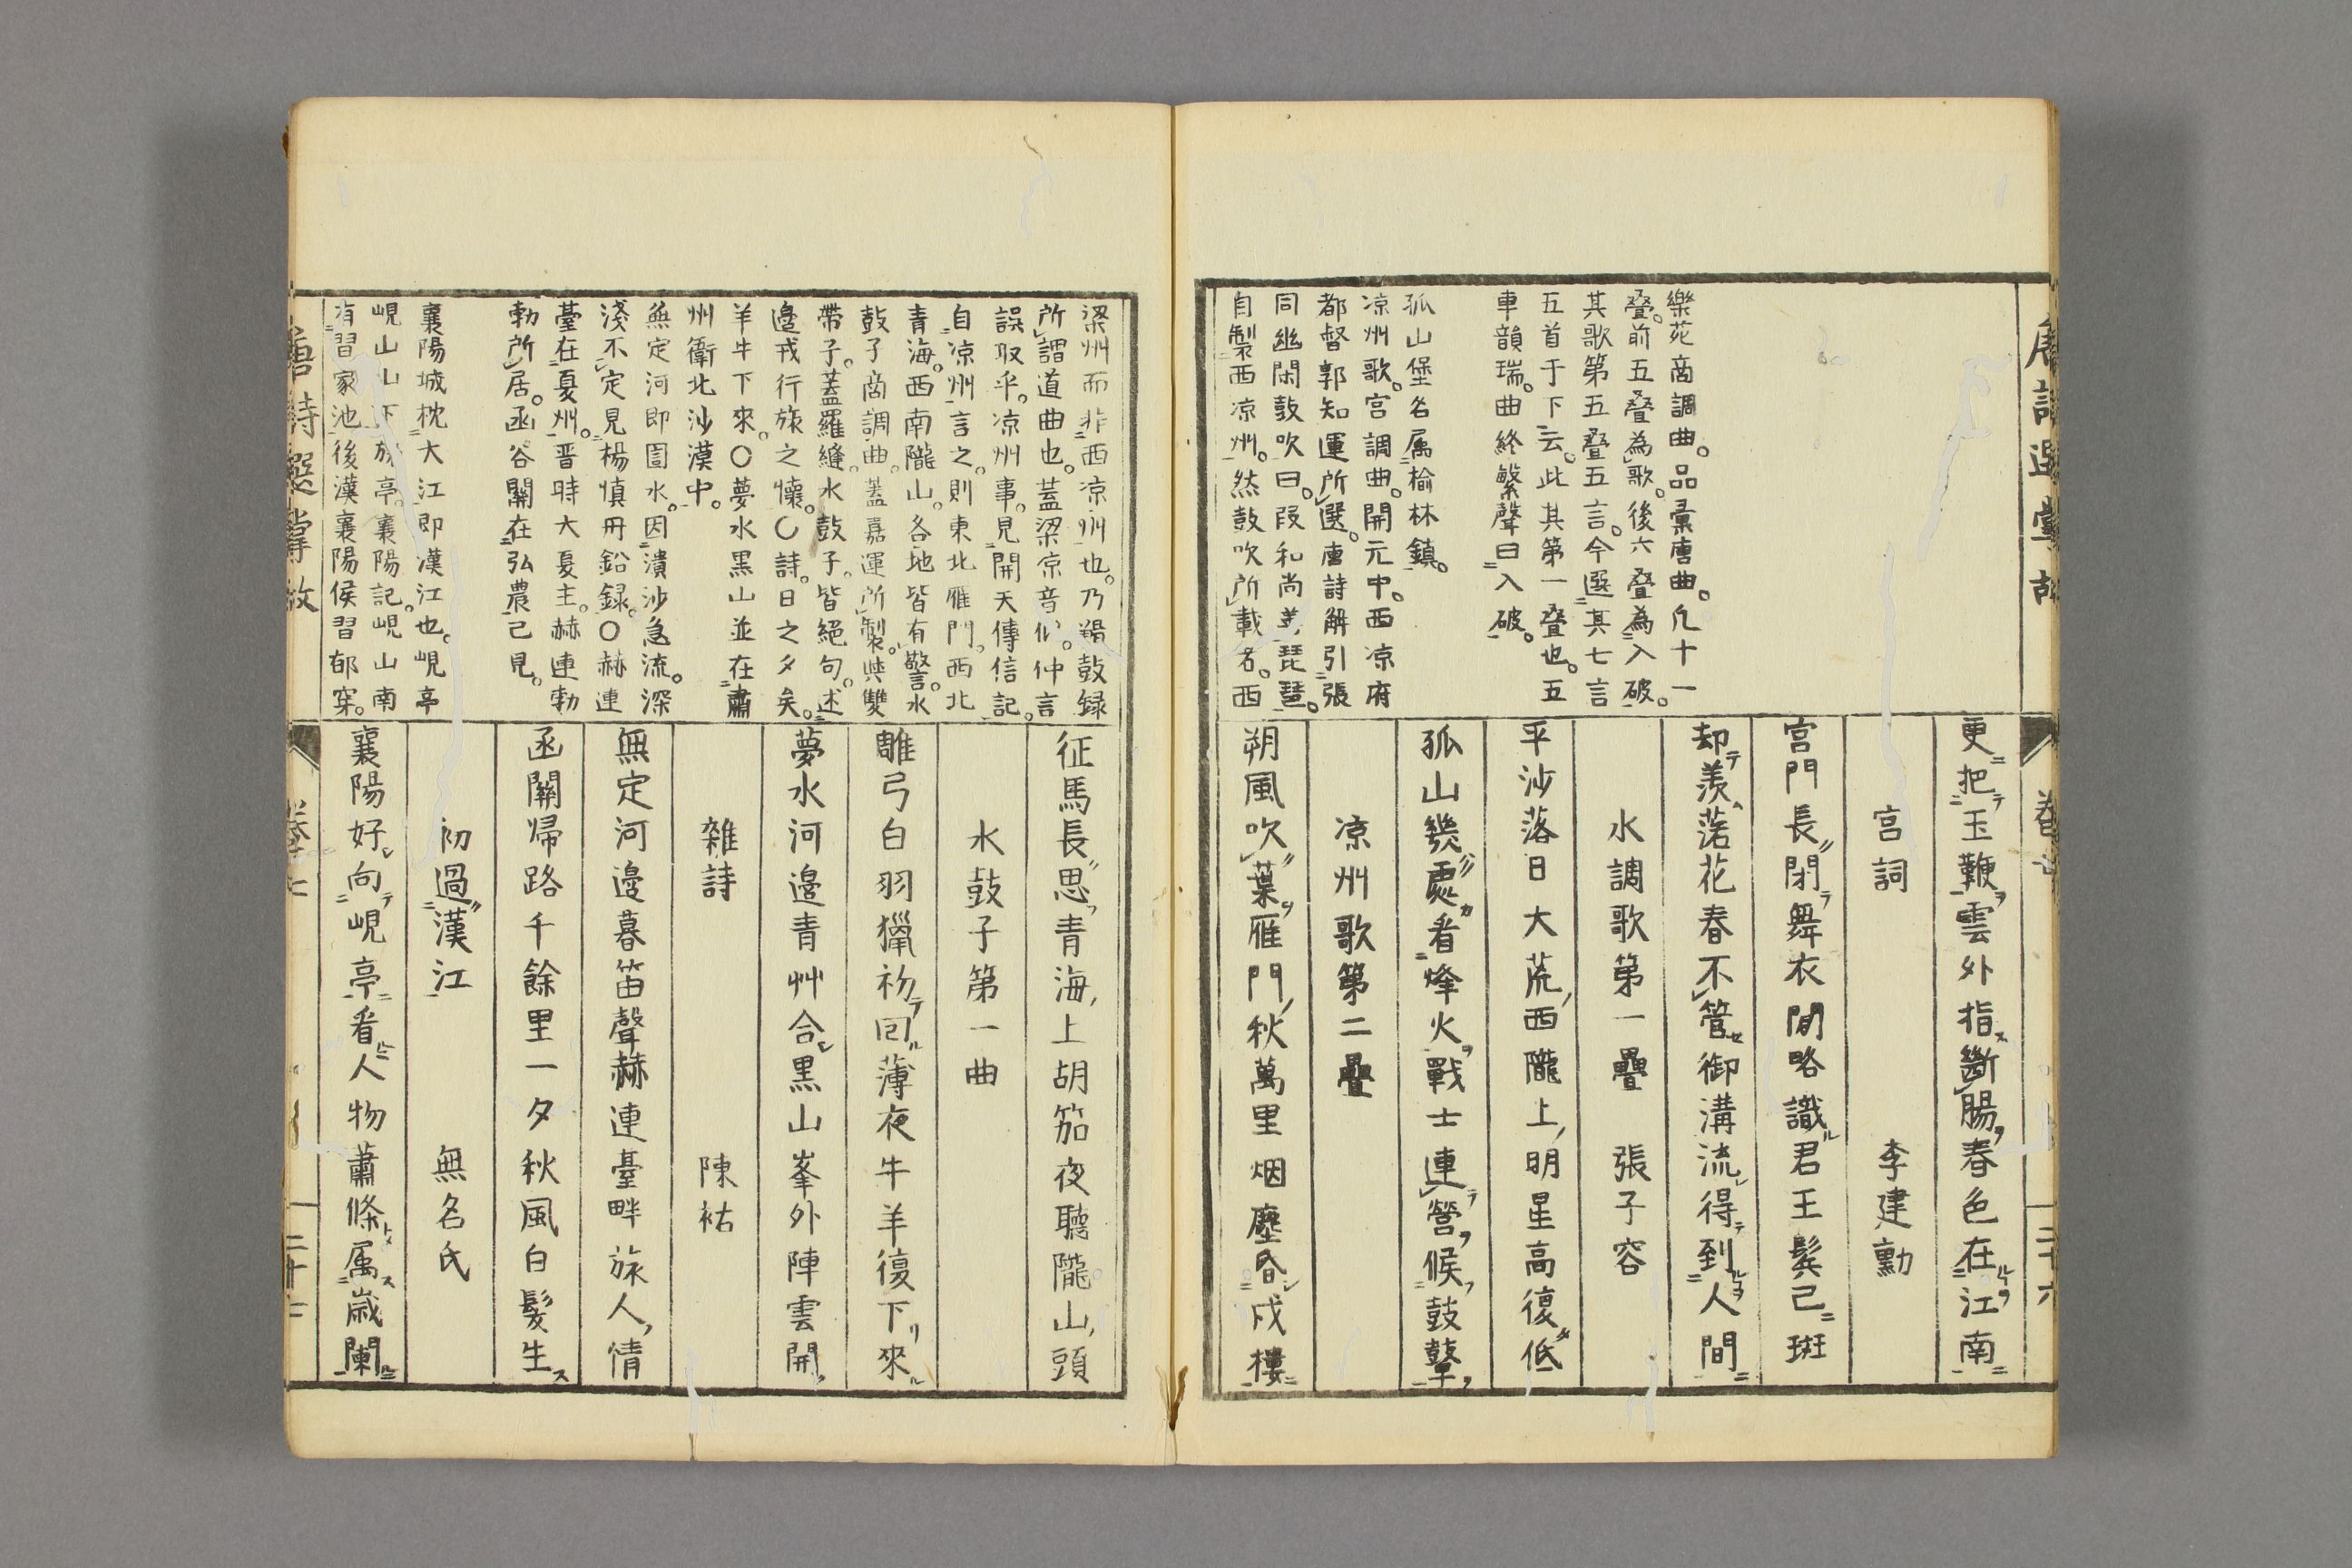 更把玉鞭雲外指斷腸春色在江南
宮詞 李建勳
宮門長閉舞衣閒略識君王鬂已斑
却羨落花春不管御溝流得到人間
水調歌第一疊 張子容
平沙落日大荒西隴上明星高復低
孤山幾處看烽火戰士連營候鼓鼙
涼州歌第二疊
朔風吹葉雁門秋萬里烟塵昏戍樓
樂苑商調曲。品彙唐曲。凡十一
叠。前五叠為歌。後六叠為入破。
其歌第五叠五言。今選其七言
五首于下云。此其第一叠也。五
車韻瑞。曲終繁聲曰入破。
孤山堡名属楡林鎮。
凉州歌。宮調曲。開元中。西凉府
都督郭知運所選。唐詩解引張
同幽閑鼓吹曰。叚和尚善琵琶。
自製西凉州。然鼓吹所載者。西
征馬長思青海上胡笳夜聽隴山頭
水鼓子第一曲
雕弓白羽獵初回薄夜牛羊復下來
夢水河邊青艸合黒山峯外陣雲開
雜詩 陳祐
無定河邊暮笛聲赫連臺畔旅人情
函關帰路千餘里一夕秋風白髮生
初過漢江 無名氏
襄陽好向峴亭看人物蕭條属歳闌
梁州而非西凉州也。乃羯鼓録
所謂道曲也。蓋梁凉音似。仲言
誤取乎。凉州事。見開天傳信記。
自凉州言之。則東北雁門。西北
青海。西南隴山。各地皆有警。水
鼓子商調曲。蓋嘉運所製。與雙
帶子。蓋羅縫。水鼓子。皆絕句。述
邉戎行旅之懷。〇詩。日之夕矣。
羊牛下來。〇夢水黒山並在肅
州衛北沙漠中。
無定河即圁水。因潰沙急流。深
淺不定見楊慎丹鉛録。〇赫連
臺在夏州。晋時大夏主。赫連勃
勃所居。函谷關在弘農已見。
襄陽城枕大江即漢江也。峴亭
峴山山下旅亭。襄陽記。峴山南
有習家池後漢襄陽侯習郁穿。
卷七
二十七